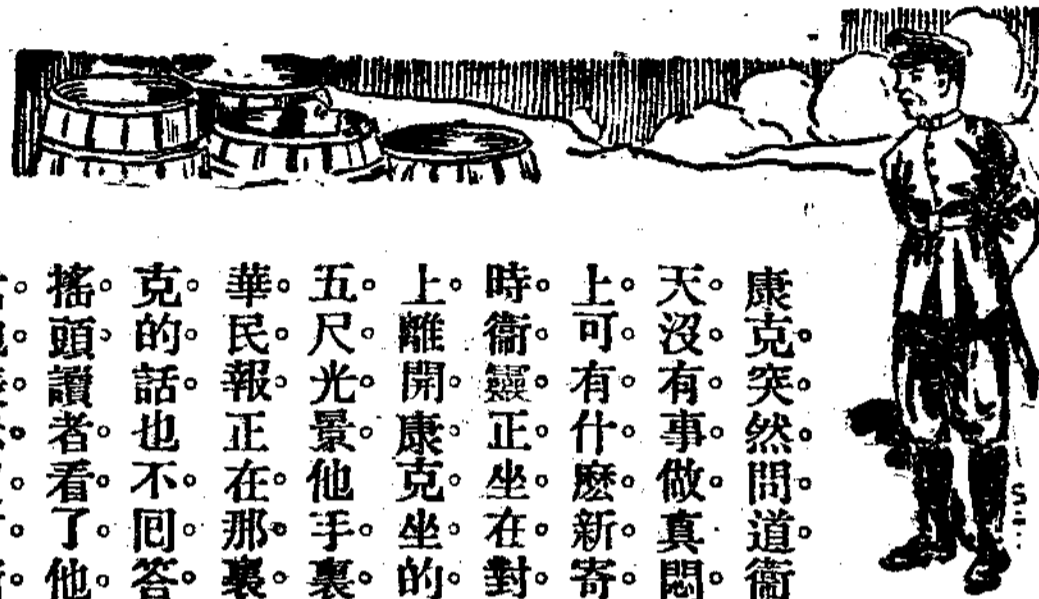 康克突然問道衞
天沒有事做真悶
上可有什麽新奇
時衞靈正坐在對
上離開康克坐的
五尺光景他手裏
華民報正在那裏
克的話也不囘答
搖頭讀者看了他